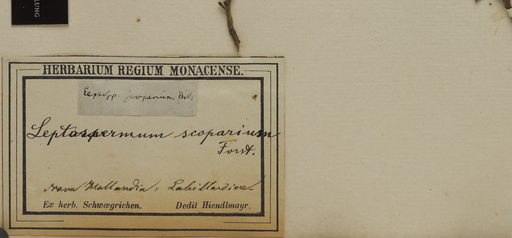 LUNG
HERBARIUM REGIUM MONACENSE.
Leptosp. scoparium.
Leptospermum scoparium
Forst.
Nova Hollandia: Labillardière.
Ex herb. Schwægrichen. Dedit Hiendlmayr.